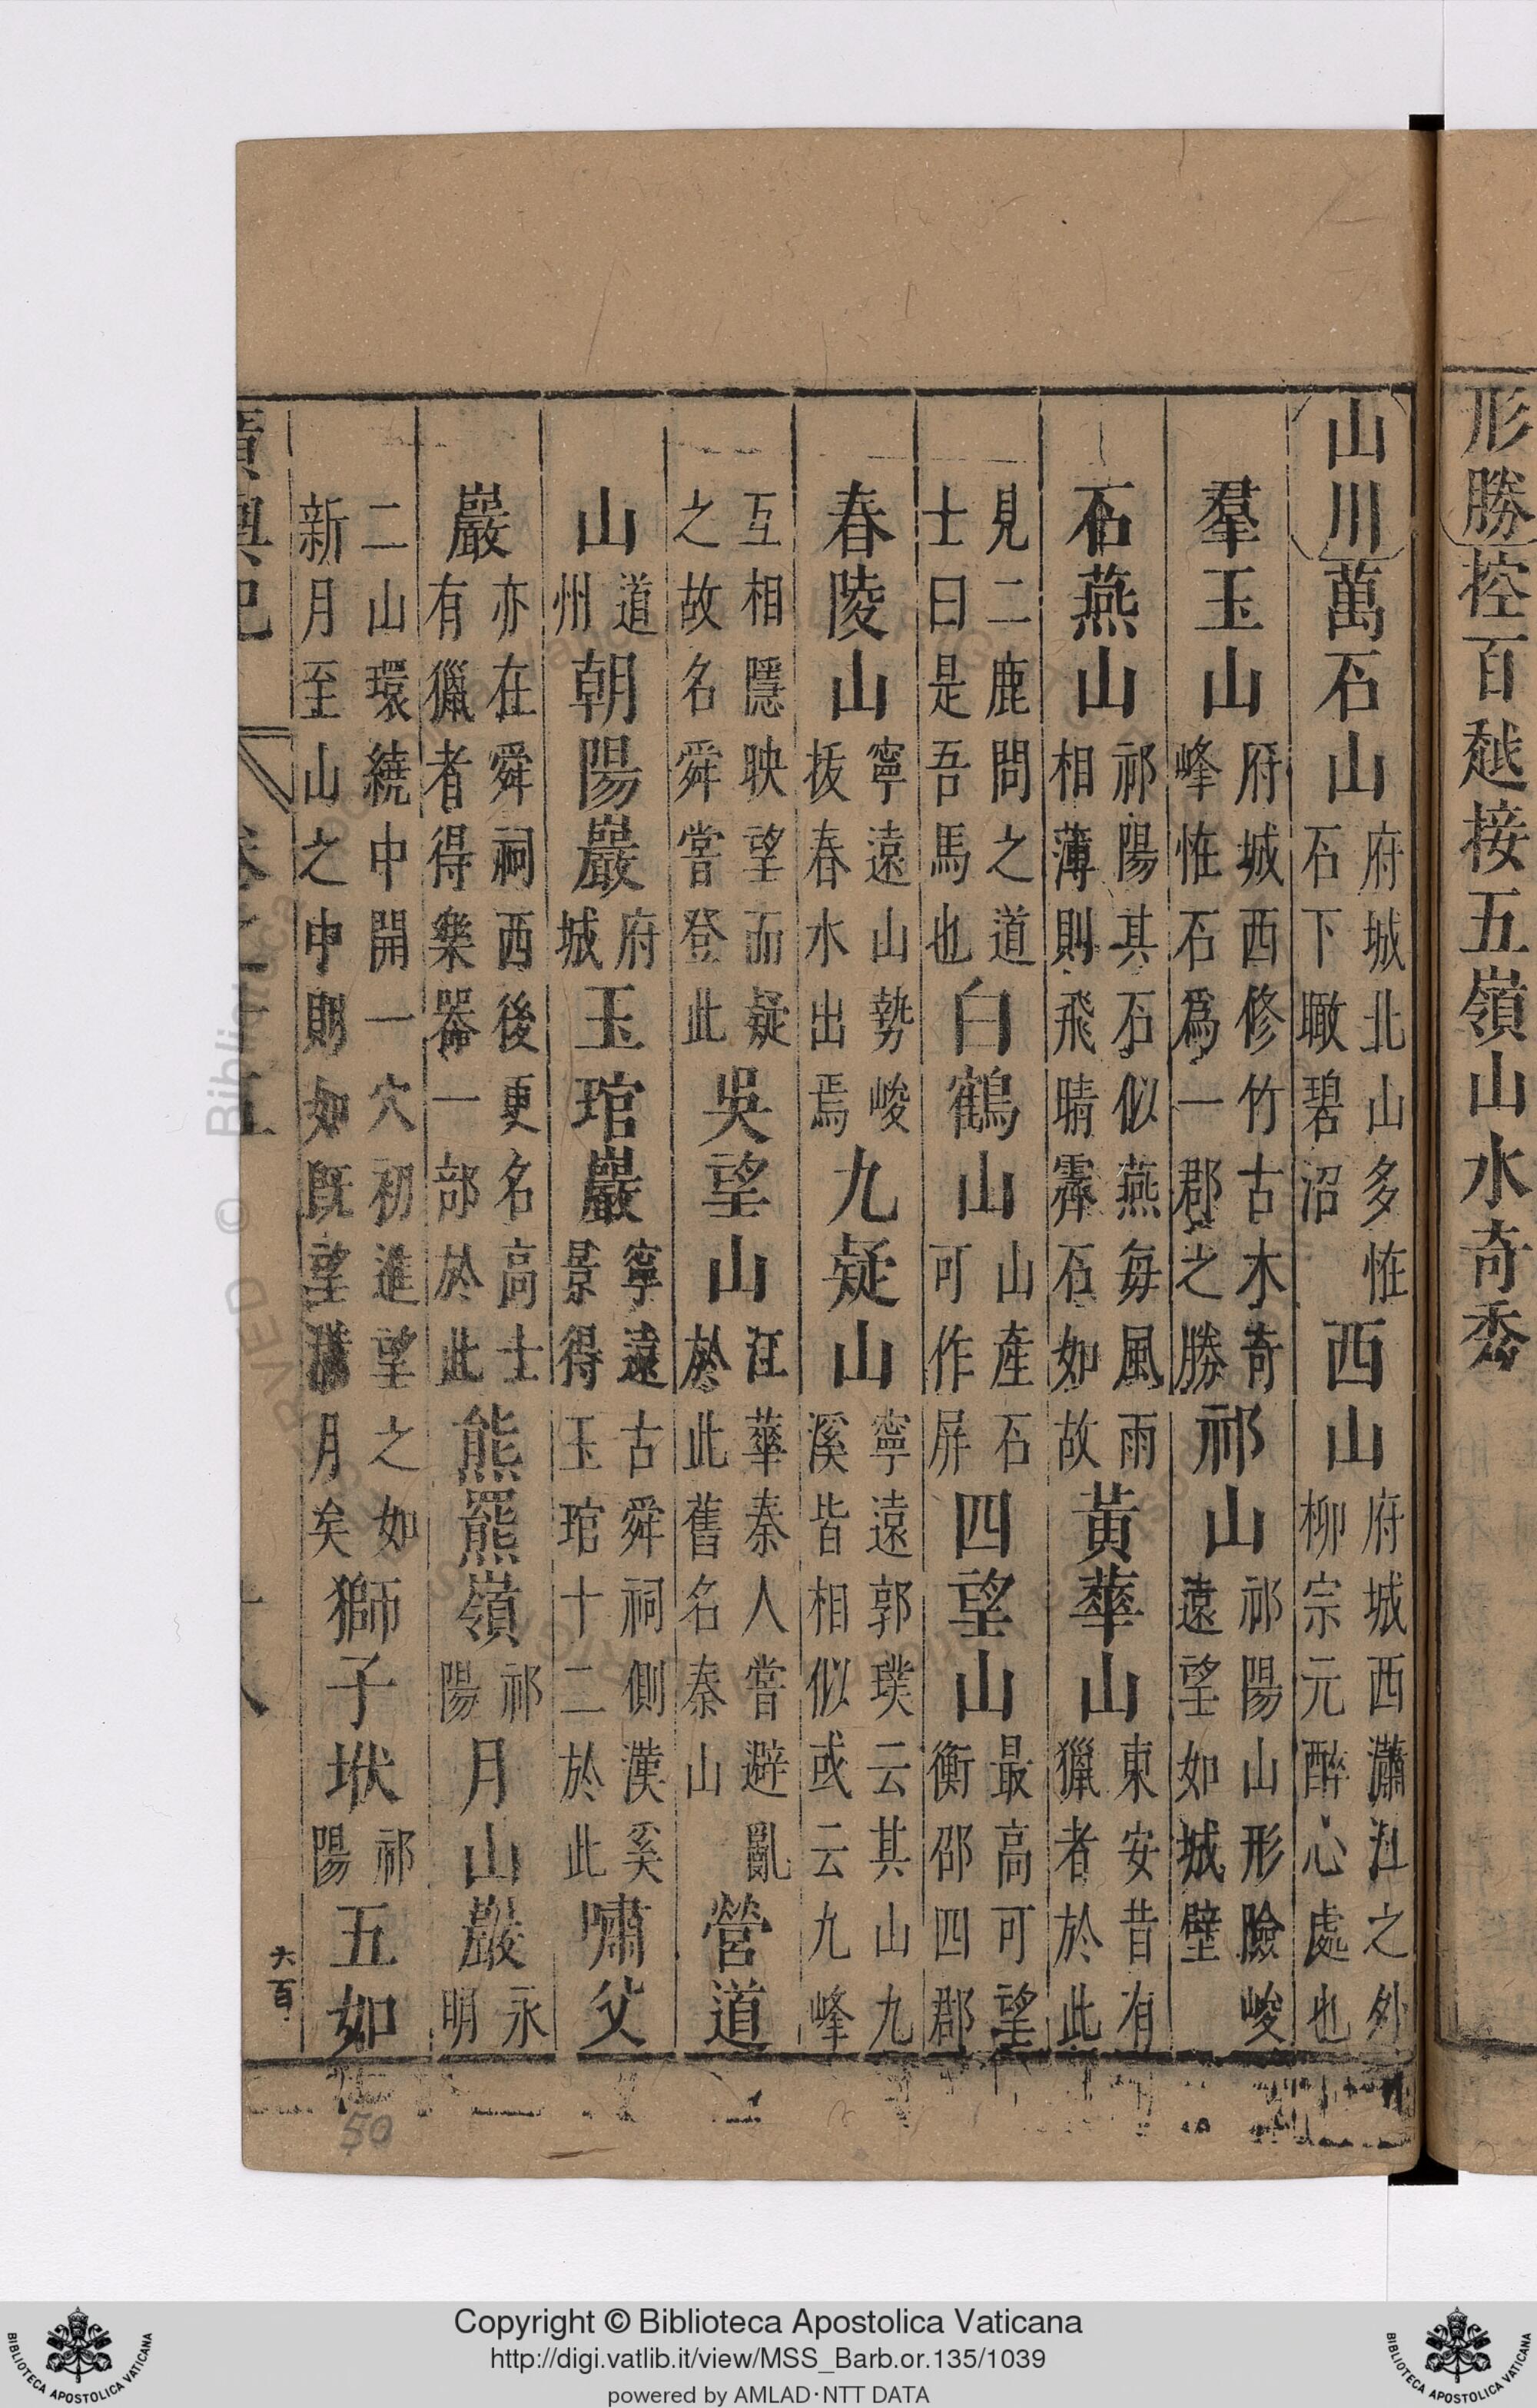 形勝控百越接五嶺山水奇秀
山川萬石山府城北山多恠石下瞰碧沼西山府城西瀟江之外柳宗元醉心處也
羣玉山府城西修竹古木奇峰恠石爲一郡之勝祁山祁陽山形險峻遠望如城壁
石燕山祁陽其石似燕每風雨相薄則飛晴霽石如故黃華山東安昔有獵者於此
見二鹿問之道士曰是吾馬也白鶴山山產石可作屏四望山最高可望衡邵四郡
春陵山寧遠山勢峻拔春水出焉九疑山寧遠郭璞云其山九溪皆相似或云九峰
互相隱映望而疑之故名舜嘗登此吳望山江華秦人嘗避亂於此舊名秦山營道
山道州朝陽巖府城玉琯巖寧遠古舜祠側漢奚景得玉琯十二於此嘯父
巖亦在舜祠西後更名高士有獵者得樂器一部於此熊羆嶺祁陽月山巖永明
二山環繞中開一穴初進望之如新月至山之中則如旣望滿月矣獅子㹜祁陽五如
廣輿記
卷之十五
十八
大百
50
Copyright © Biblioteca Apostolica Vaticana
http://digi.vatlib.it/view/MSS_Barb.or.135/1039
powered by AMLAD·NTT DATA
BIBLIOTECA APOSTOLICA VATICANA
BIBLIOTECA APOSTOLICA VATICANA